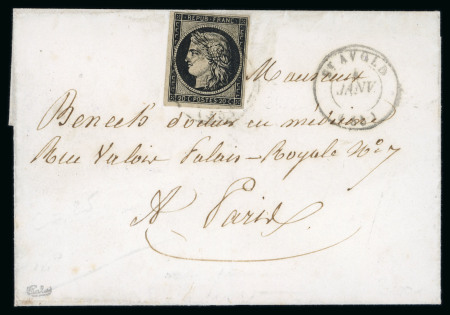 REPUB. FRANC.
20 C POSTES 20 C
ST AVOLD
JANV.
Monsieur
Benech docteur en médecine
Rue Valois Palais-Royale No. 7
A Paris